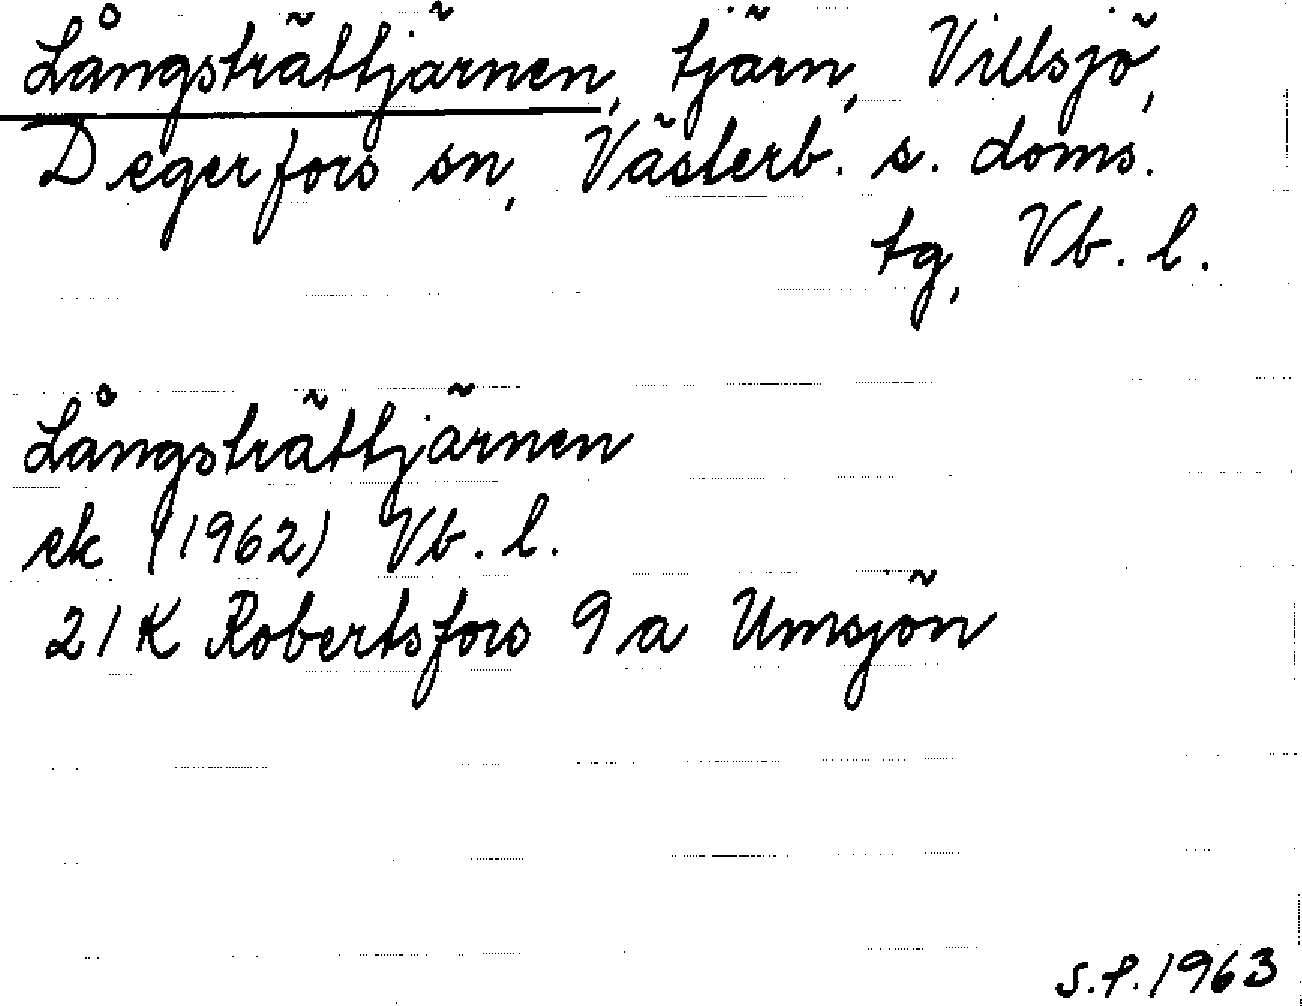 Långsträttjärnen, tjärn, Villsjö,
Degerfors sn, Västerb. s. doms.
tg, Vb. l.
Långsträttjärnen
ek (1962) Vb. l.
21K Robertsfors 9a Umsjön
S.f. 1963